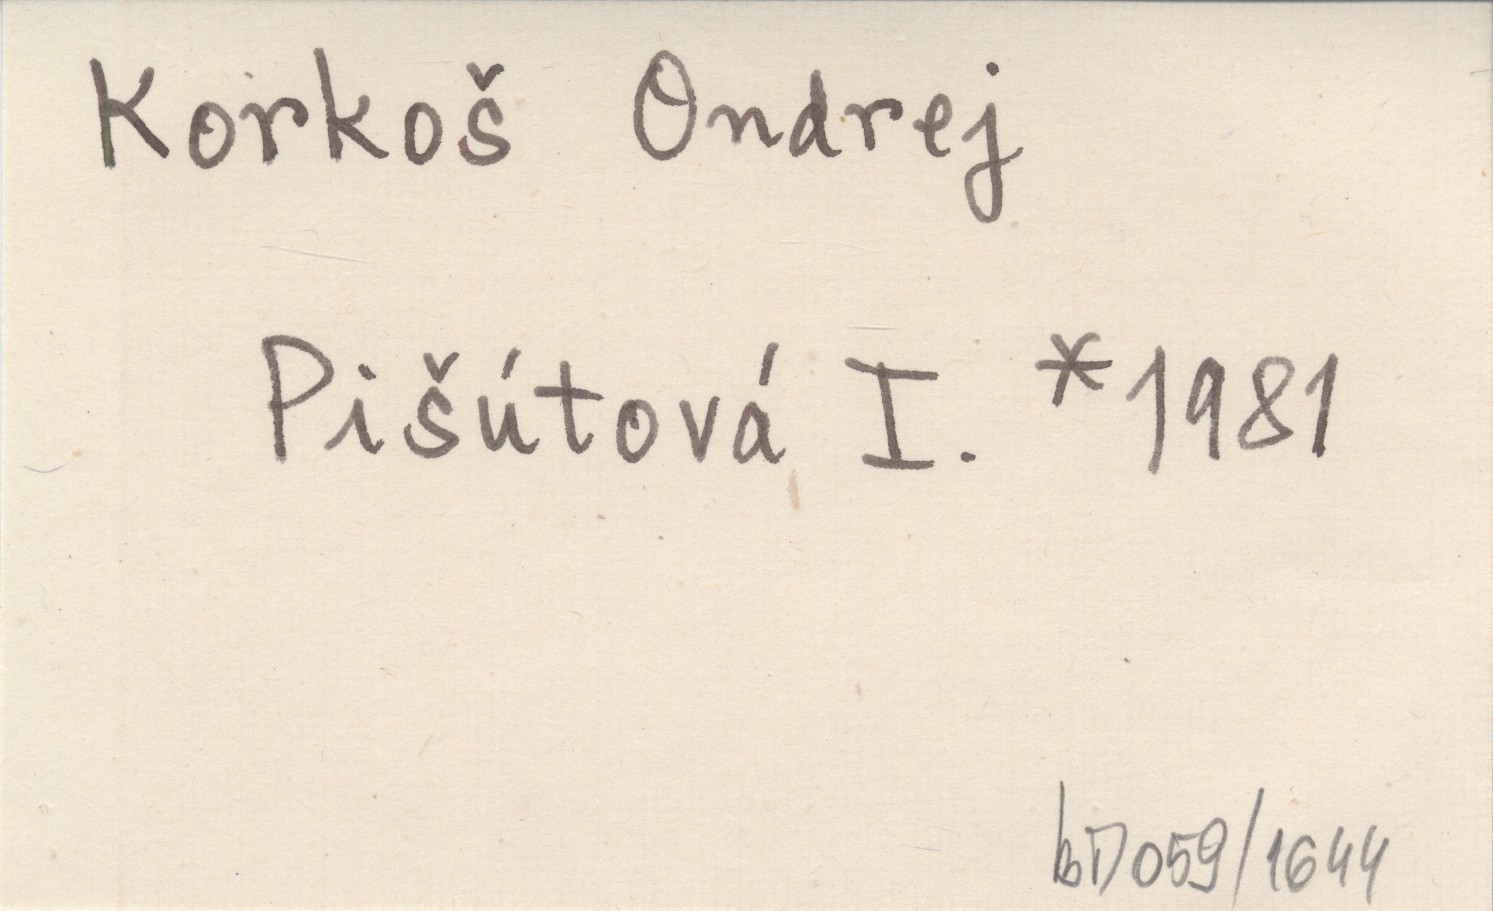 Korkoš Ondrej
Pišútová I. *1981
bD059/1644